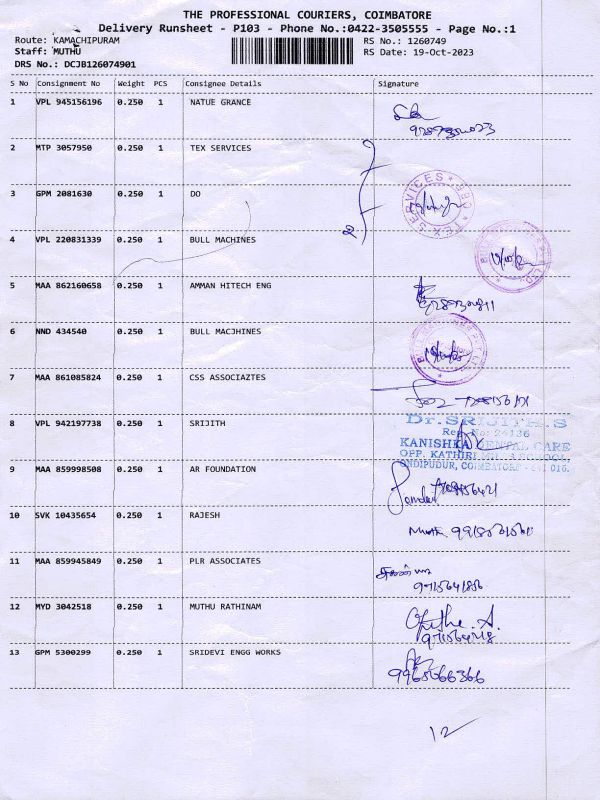 THE PROFESSIONAL COURIERS, COIMBATORE
Delivery Runsheet - P103 - Phone No.:0422-3505555 - Page No.:1
Route: KAMACHIPURAM RS No.: 1260749
Staff: MUTHU RS Date: 19-Oct-2023
DRS No.: DCJB126074901
S No Consignment No Weight PCS Consignee Details Signature
1 VPL 945156196 0.250 1 NATUE GRANCE
2 MTP 3057950 0.250 1 TEX SERVICES
3 GPM 2081630 0.250 1 DO
TEX SERVICES
4 VPL 220831339 0.250 1 BULL MACHINES
5 MAA 862160658 0.250 1 AMMAN HITECH ENG
6 NND 434540 0.250 1 BULL MACJHINES
7 MAA 861085824 0.250 1 CSS ASSOCIAZTES
8 VPL 942197738 0.250 1 SRIJITH
Dr.SRIJITH.S
Reg No: 24136
KANISHKA DENTAL CARE
OPP. KATHIRI
ONDIPUDUR, COIMBATORE
9 MAA 859998508 0.250 1 AR FOUNDATION
10 SVK 10435654 0.250 1 RAJESH
11 MAA 859945849 0.250 1 PLR ASSOCIATES
12 MYD 3042518 0.250 1 MUTHU RATHINAM
13 GPM 5300299 0.250 1 SRIDEVI ENGG WORKS
12